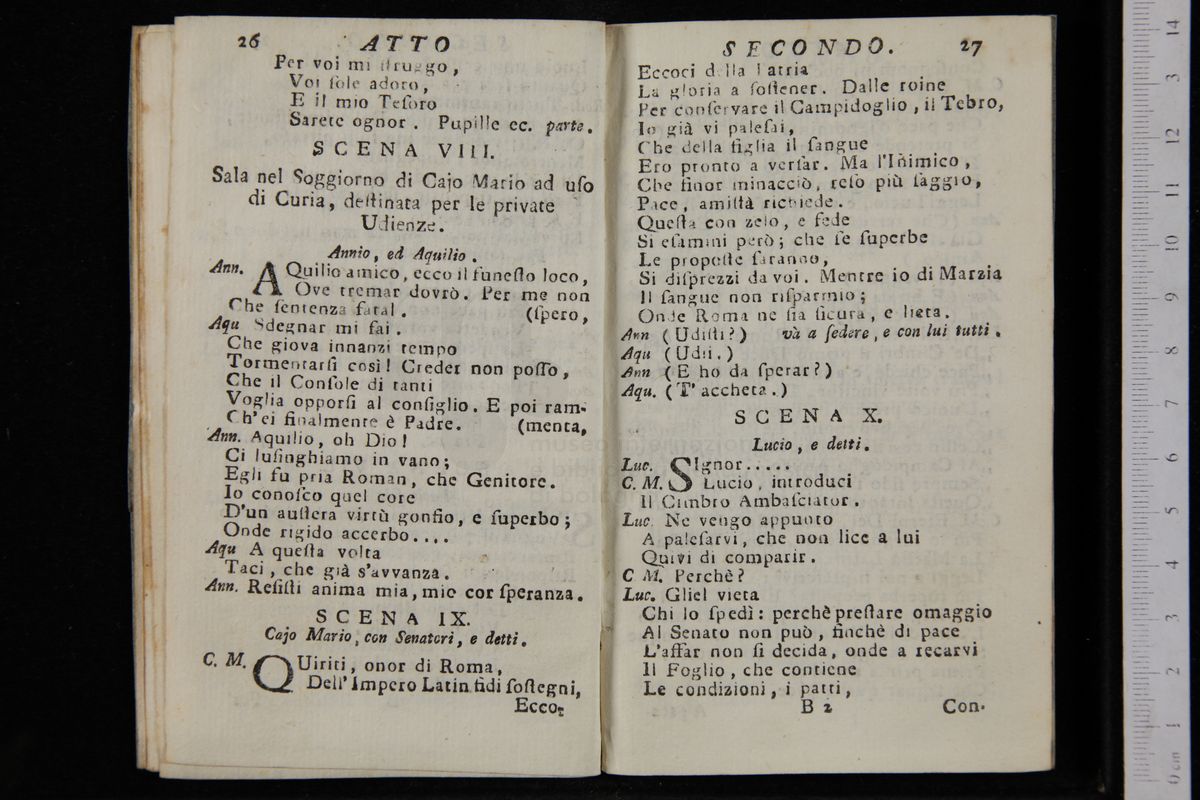 26 ATTO
Per voi mi struggo,
Voi sole adoro,
E il mio Tesoro
Sarete ognor. Pupille ec. parte.
SCENA VIII.
Sala nel Soggiorno di Cajo Mario ad uso
di Curia, destinata per le private
Udienze.
Annio, ed Aquilio.
Ann. AQuilio amico, ecco il funesto loco,
Ove tremar dovrò. Per me non
Che sentenza fatal. (spero,
Aqu Sdegnar mi fai.
Che giova innanzi tempo
Tormentarsi così! Creder non posso,
Che il Console di tanti
Voglia opporsi al consiglio. E poi ram-
Ch'ei finalmente è Padre. (menta,
Ann. Aquilio, oh Dio!
Ci lusinghiamo in vano;
Egli fu pria Roman, che Genitore.
Io conosco quel core
D'un austera virtù gonfio, e superbo;
Onde rigido accerbo....
Aqu A questa volta
Taci, che già s'avvanza.
Ann. Resisti anima mia, mio cor speranza.
SCENA IX.
Cajo Mario, con Senatori, e detti.
C. M. QUiriti, onor di Roma,
Dell' Impero Latin fidi sostegni,
Ecco-
SECONDO. 27
Eccoci della Patria
La gloria a sostener. Dalle roine
Per conservare il Campidoglio, il Tebro,
Io già vi palesai,
Che della figlia il sangue
Ero pronto a versar. Ma l'Inimico,
Che finor minacciò, reso più saggio,
Pace, amistà richiede.
Questa con zelo, e fede
Si esamini però; che se superbe
Le proposte saranno,
Si disprezzi da voi. Mentre io di Marzia
Il sangue non risparmio;
Onde Roma ne sia sicura, e lieta.
Ann (Udisti?) và a sedere, e con lui tutti.
Aqu (Udii.)
Ann (E ho da sperar?)
Aqu. (T' accheta.)
SCENA X.
Lucio, e detti.
Luc. SIgnor.....
C. M. Lucio, introduci
Il Cimbro Ambasciator.
Luc. Ne vengo appunto
A palesarvi, che non lice a lui
Quivi di comparir.
C M. Perchè?
Luc. Gliel vieta
Chi lo spedì: perchè prestare omaggio
Al Senato non può, finchè di pace
L'affar non si decida, onde a recarvi
Il Foglio, che contiene
Le condizioni, i patti,
B 2 Con-